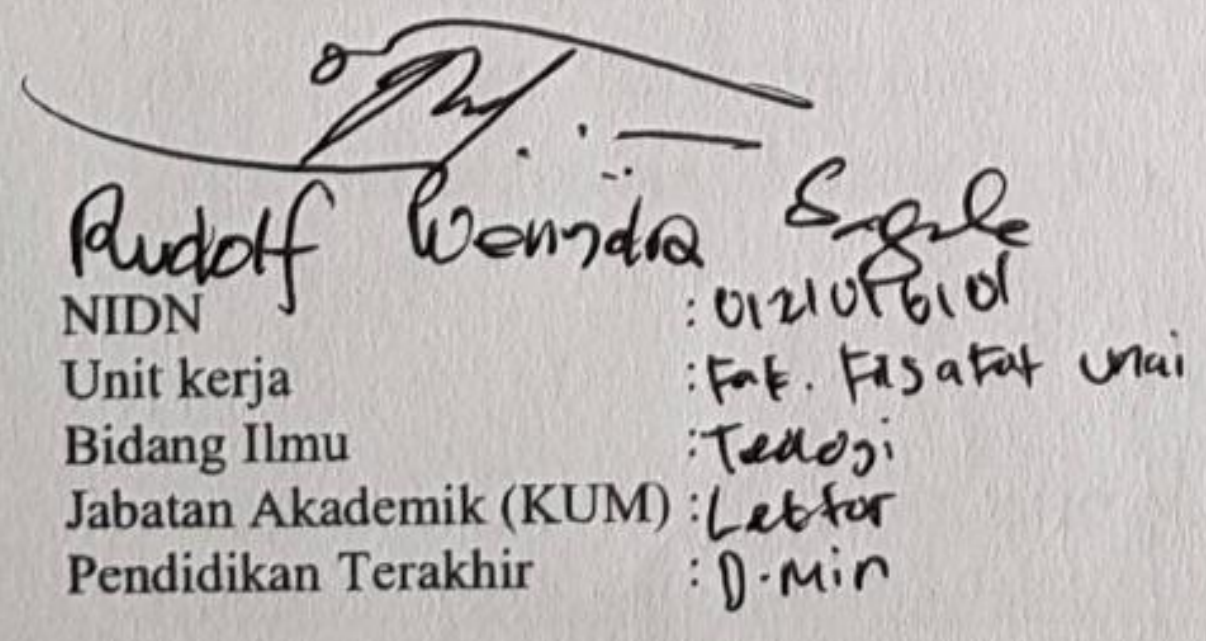 Rudolf Weindra
NIDN :
Unit kerja : Fak. Filsafat Unai
Bidang Ilmu : Teologi
Jabatan Akademik (KUM) : Lektor
Pendidikan Terakhir : D.Min